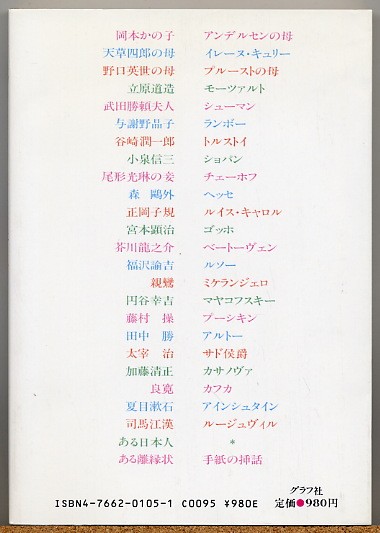 岡本かの子 アンデルセンの母
天草四郎の母 イレーヌ・キュリー
野口英世の母 プルーストの母
立原道造 モーツァルト
武田勝頼夫人 シューマン
与謝野晶子 ランボー
谷崎潤一郎 トルストイ
小泉信三 ショパン
尾形光琳の妾 チェーホフ
森 鷗外 ヘッセ
正岡子規 ルイス・キャロル
宮本顕治 ゴッホ
芥川龍之介 ベートーヴェン
福沢諭吉 ルソー
親鸞 ミケランジェロ
円谷幸吉 マヤコフスキー
藤村 操 プーシキン
田中 勝 アルトー
太宰 治 サド侯爵
加藤清正 カサノヴァ
良寛 カフカ
夏目漱石 アインシュタイン
司馬江漢 ルージュヴィル
ある日本人 *
ある離縁状 手紙の挿話
グラフ社
ISBN4-7662-0105-1 C0095 ¥980E 定価●980円